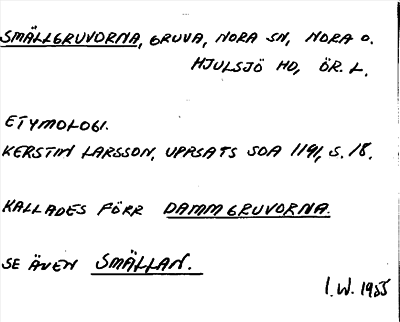 SMÄLLGRUVORNA, GRUVA, NORA SN, NORA O.
HJULSJÖ HD, ÖR. L.
ETYMOLOGI.
KERSTIN LARSSON, UPPSATS SOA 1191, S. 18.
KALLADES FÖRR DAMMGRUVORNA.
SE ÄVEN SMÄLLAN.
I.W. 1955